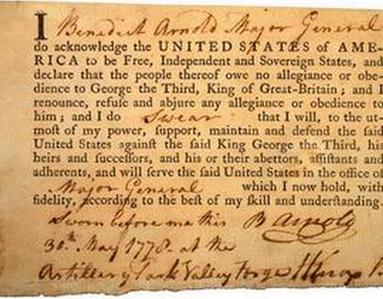 I Benedict Arnold Major General
do acknowledge the UNITED STATES of AME-
RICA to be Free, Independent and Sovereign States, and
declare that the people thereof owe no allegiance or obe-
dience to George the Third, King of Great-Britain; and I
renounce, refuse and abjure any allegiance or obedience to
him; and I do Swear that I will, to the ut-
most of my power, support, maintain and defend the said
United States against the said King George the Third, his
heirs and successors, and his or their abettors, assistants and
adherents, and will serve the said United States in the office of
Major General which I now hold, with
fidelity, according to the best of my skill and understanding.
Sworn before me this B Arnold
30th May 1778 at the
Artillery Park Valley Forge HKnox